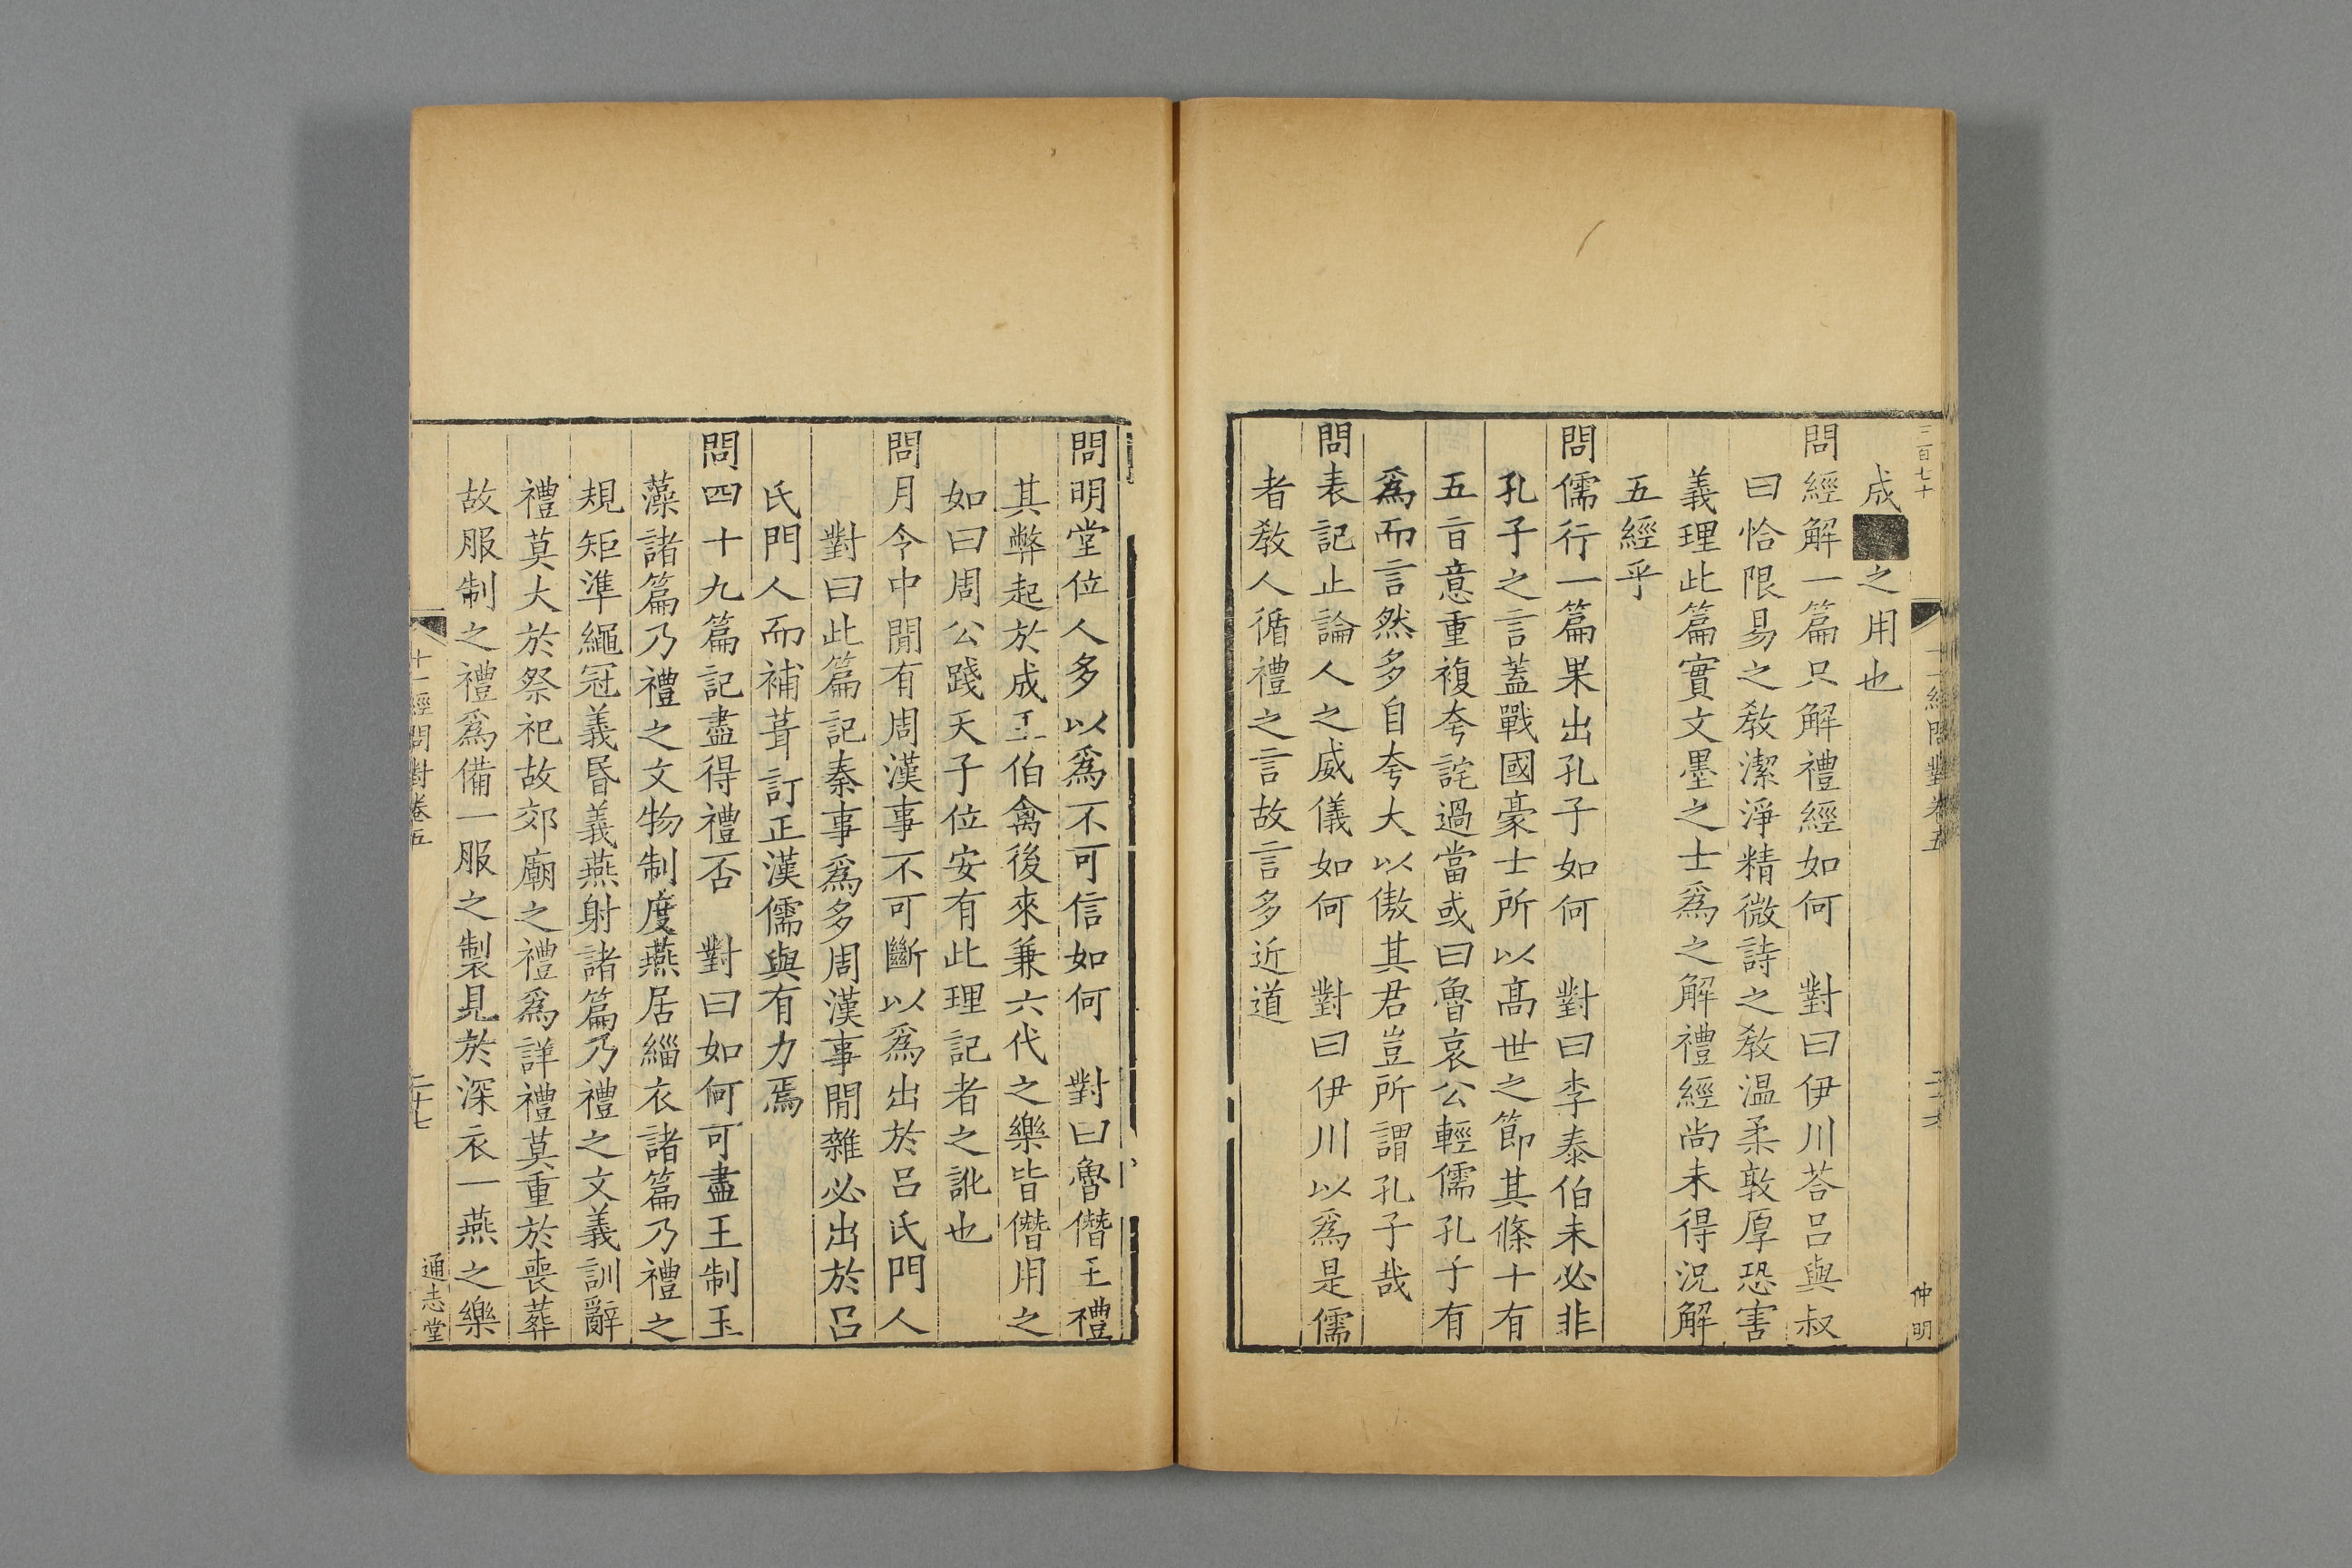 三百七十
十一經問對卷五
二十六
仲明
成
之用也
問經解一篇只解禮經如何　對曰伊川荅呂與叔
曰恰限易之敎潔淨精微詩之敎温柔敦厚恐害
義理此篇實文墨之士爲之解禮經尚未得況解
五經乎
問儒行一篇果出孔子如何　對曰李泰伯未必非
孔子之言蓋戰國豪士所以髙世之節其條十有
五㫖意重複夸詫過當或曰魯哀公輕儒孔子有
爲而言然多自夸大以傲其君豈所謂孔子哉
問表記止論人之威儀如何　對曰伊川以爲是儒
者敎人循禮之言故言多近道
問明堂位人多以爲不可信如何　對曰魯僭王禮
其弊起於成王伯禽後來兼六代之樂皆僭用之
如曰周公踐天子位安有此理記者之訛也
問月令中閒有周漢事不可斷以爲出於呂氏門人
對曰此篇記秦事爲多周漢事閒雜必出於呂
氏門人而補葺訂正漢儒與有力焉
問四十九篇記盡得禮否　對曰如何可盡王制玉
藻諸篇乃禮之文物制度燕居緇衣諸篇乃禮之
規矩準繩冠義昏義燕射諸篇乃禮之文義訓辭
禮莫大於祭祀故郊廟之禮爲詳禮莫重於喪葬
故服制之禮爲備一服之製見於深衣一燕之樂
十一經問對卷五
二十七
通志堂